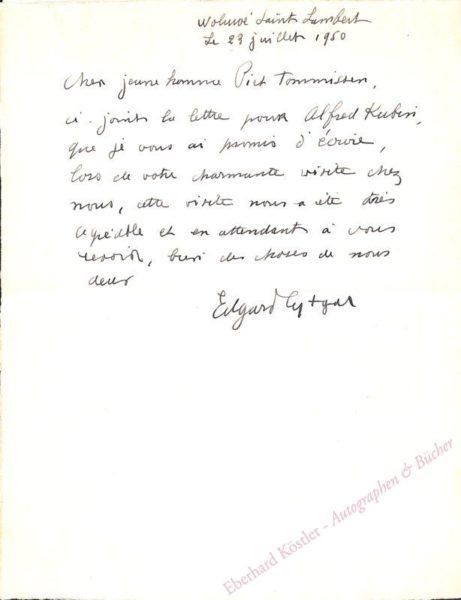 Woluwé Saint Lambert
Le 23 juillet 1950
Cher jeune homme Piet Tommissen,
ci-joint la lettre pour Alfred Kubin,
que je vous ai promis d'écrire,
lors de votre charmante visite chez
nous, cette visite nous a été très
agréable et en attendant à vous
revoir, bien des choses de nous
deux
Edgard Tytgat
Eberhard Köstler - Autographen & Bücher